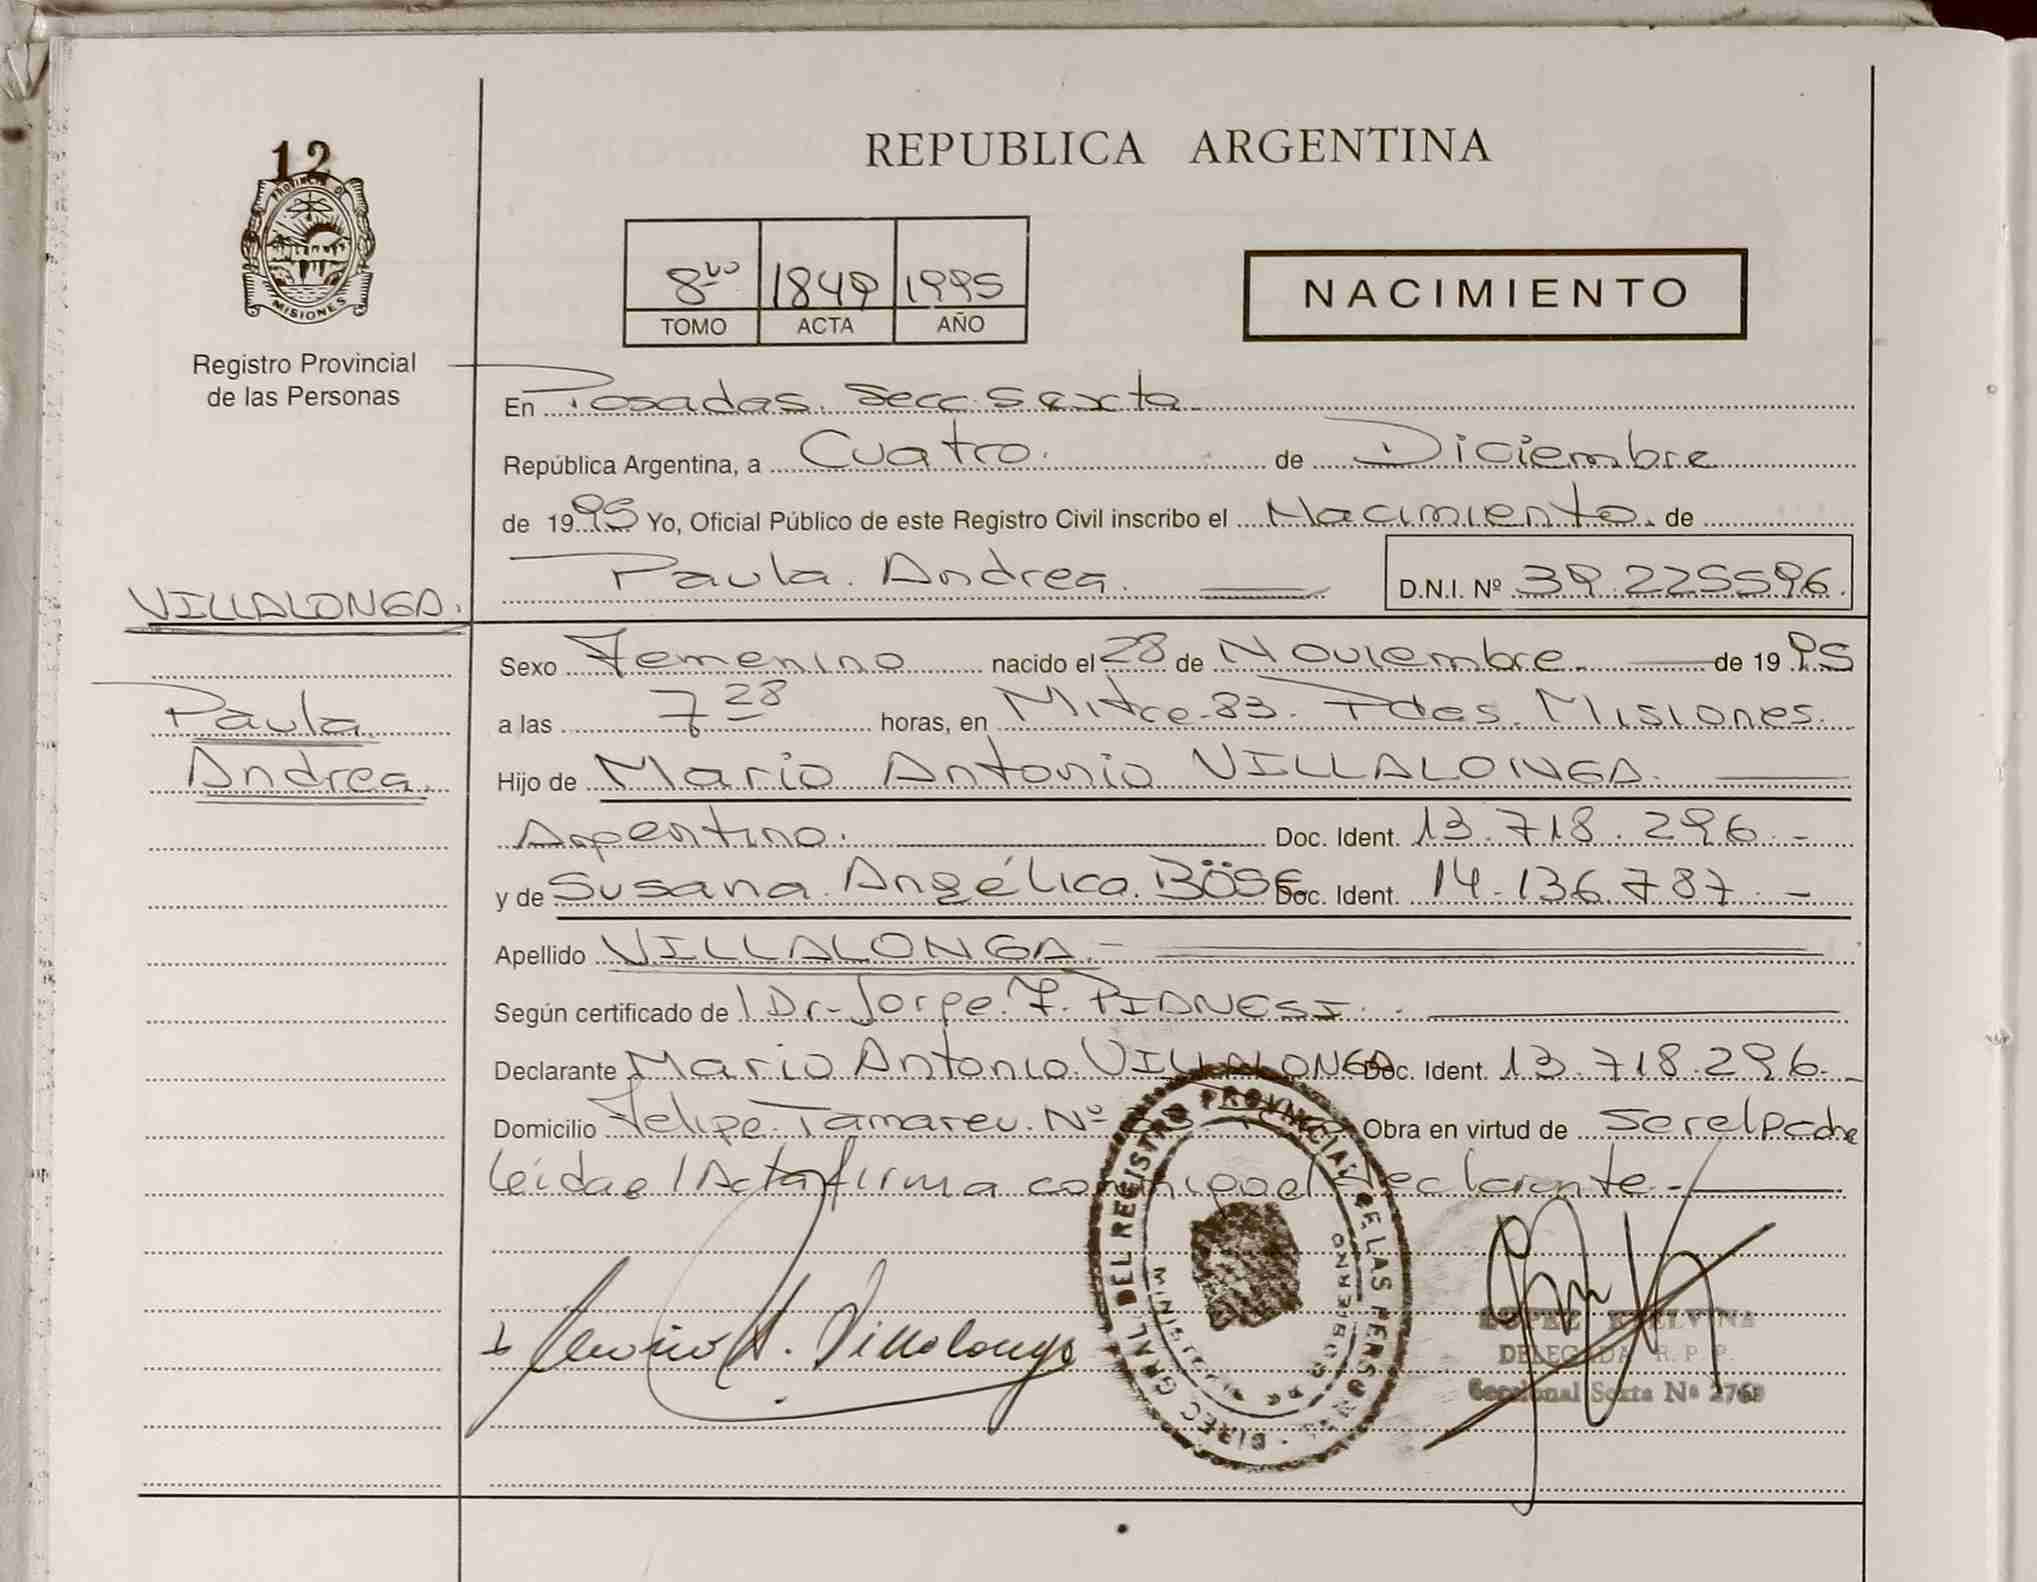 12
PROVINCIA DE
MISIONES
Registro Provincial
de las Personas
VILLALONGA.
Paula
Andrea.
REPUBLICA ARGENTINA
8vo 1849 1995
TOMO ACTA AÑO
NACIMIENTO
En Posadas. Secc. Sexta
República Argentina, a Cuatro. de Diciembre
de 1995 Yo, Oficial Público de este Registro Civil inscribo el Nacimiento. de
Paula. Andrea. D.N.I. Nº 39.225596.
Sexo Femenino nacido el 28 de Noviembre de 1995
a las 7 28 horas, en Mitre-83- Pdas. Misiones.
Hijo de Mario Antonio VILLALONGA.
Argentino. Doc. Ident. 13.718.296.-
y de Susana. Angélica. BÖSE Doc. Ident. 14.136.787.-
Apellido VILLALONGA.-
Según certificado de l Dr. Jorge. F. PIANESI.
Declarante Mario Antonio. VILLALONGA Doc. Ident. 13.718.296.-
Domicilio Felipe Tamareu. Nº Obra en virtud de ser el Padre
Leída el Acta firma conmigo el declarante.-
Mario A. Villalonga
DIREC. GRAL. DEL REGISTRO PROVINCIAL DE LAS PERSONAS
MINISTERIO DE GOBIERNO
LOPEZ ELVINA
DELEGADA R. P. P.
Seccional Sexta Nº